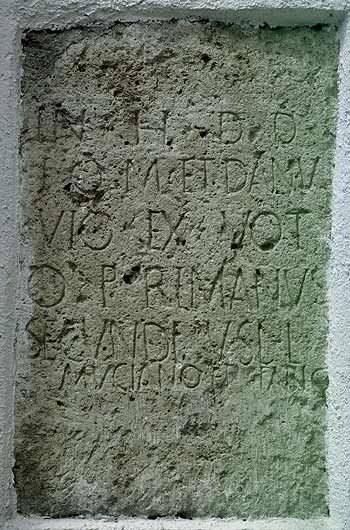 IN H D D
I O M ET DANV
VIO EX VOT
O PRIMANVS
SECVNDI V S L L
MVCIANO ET FABIANO